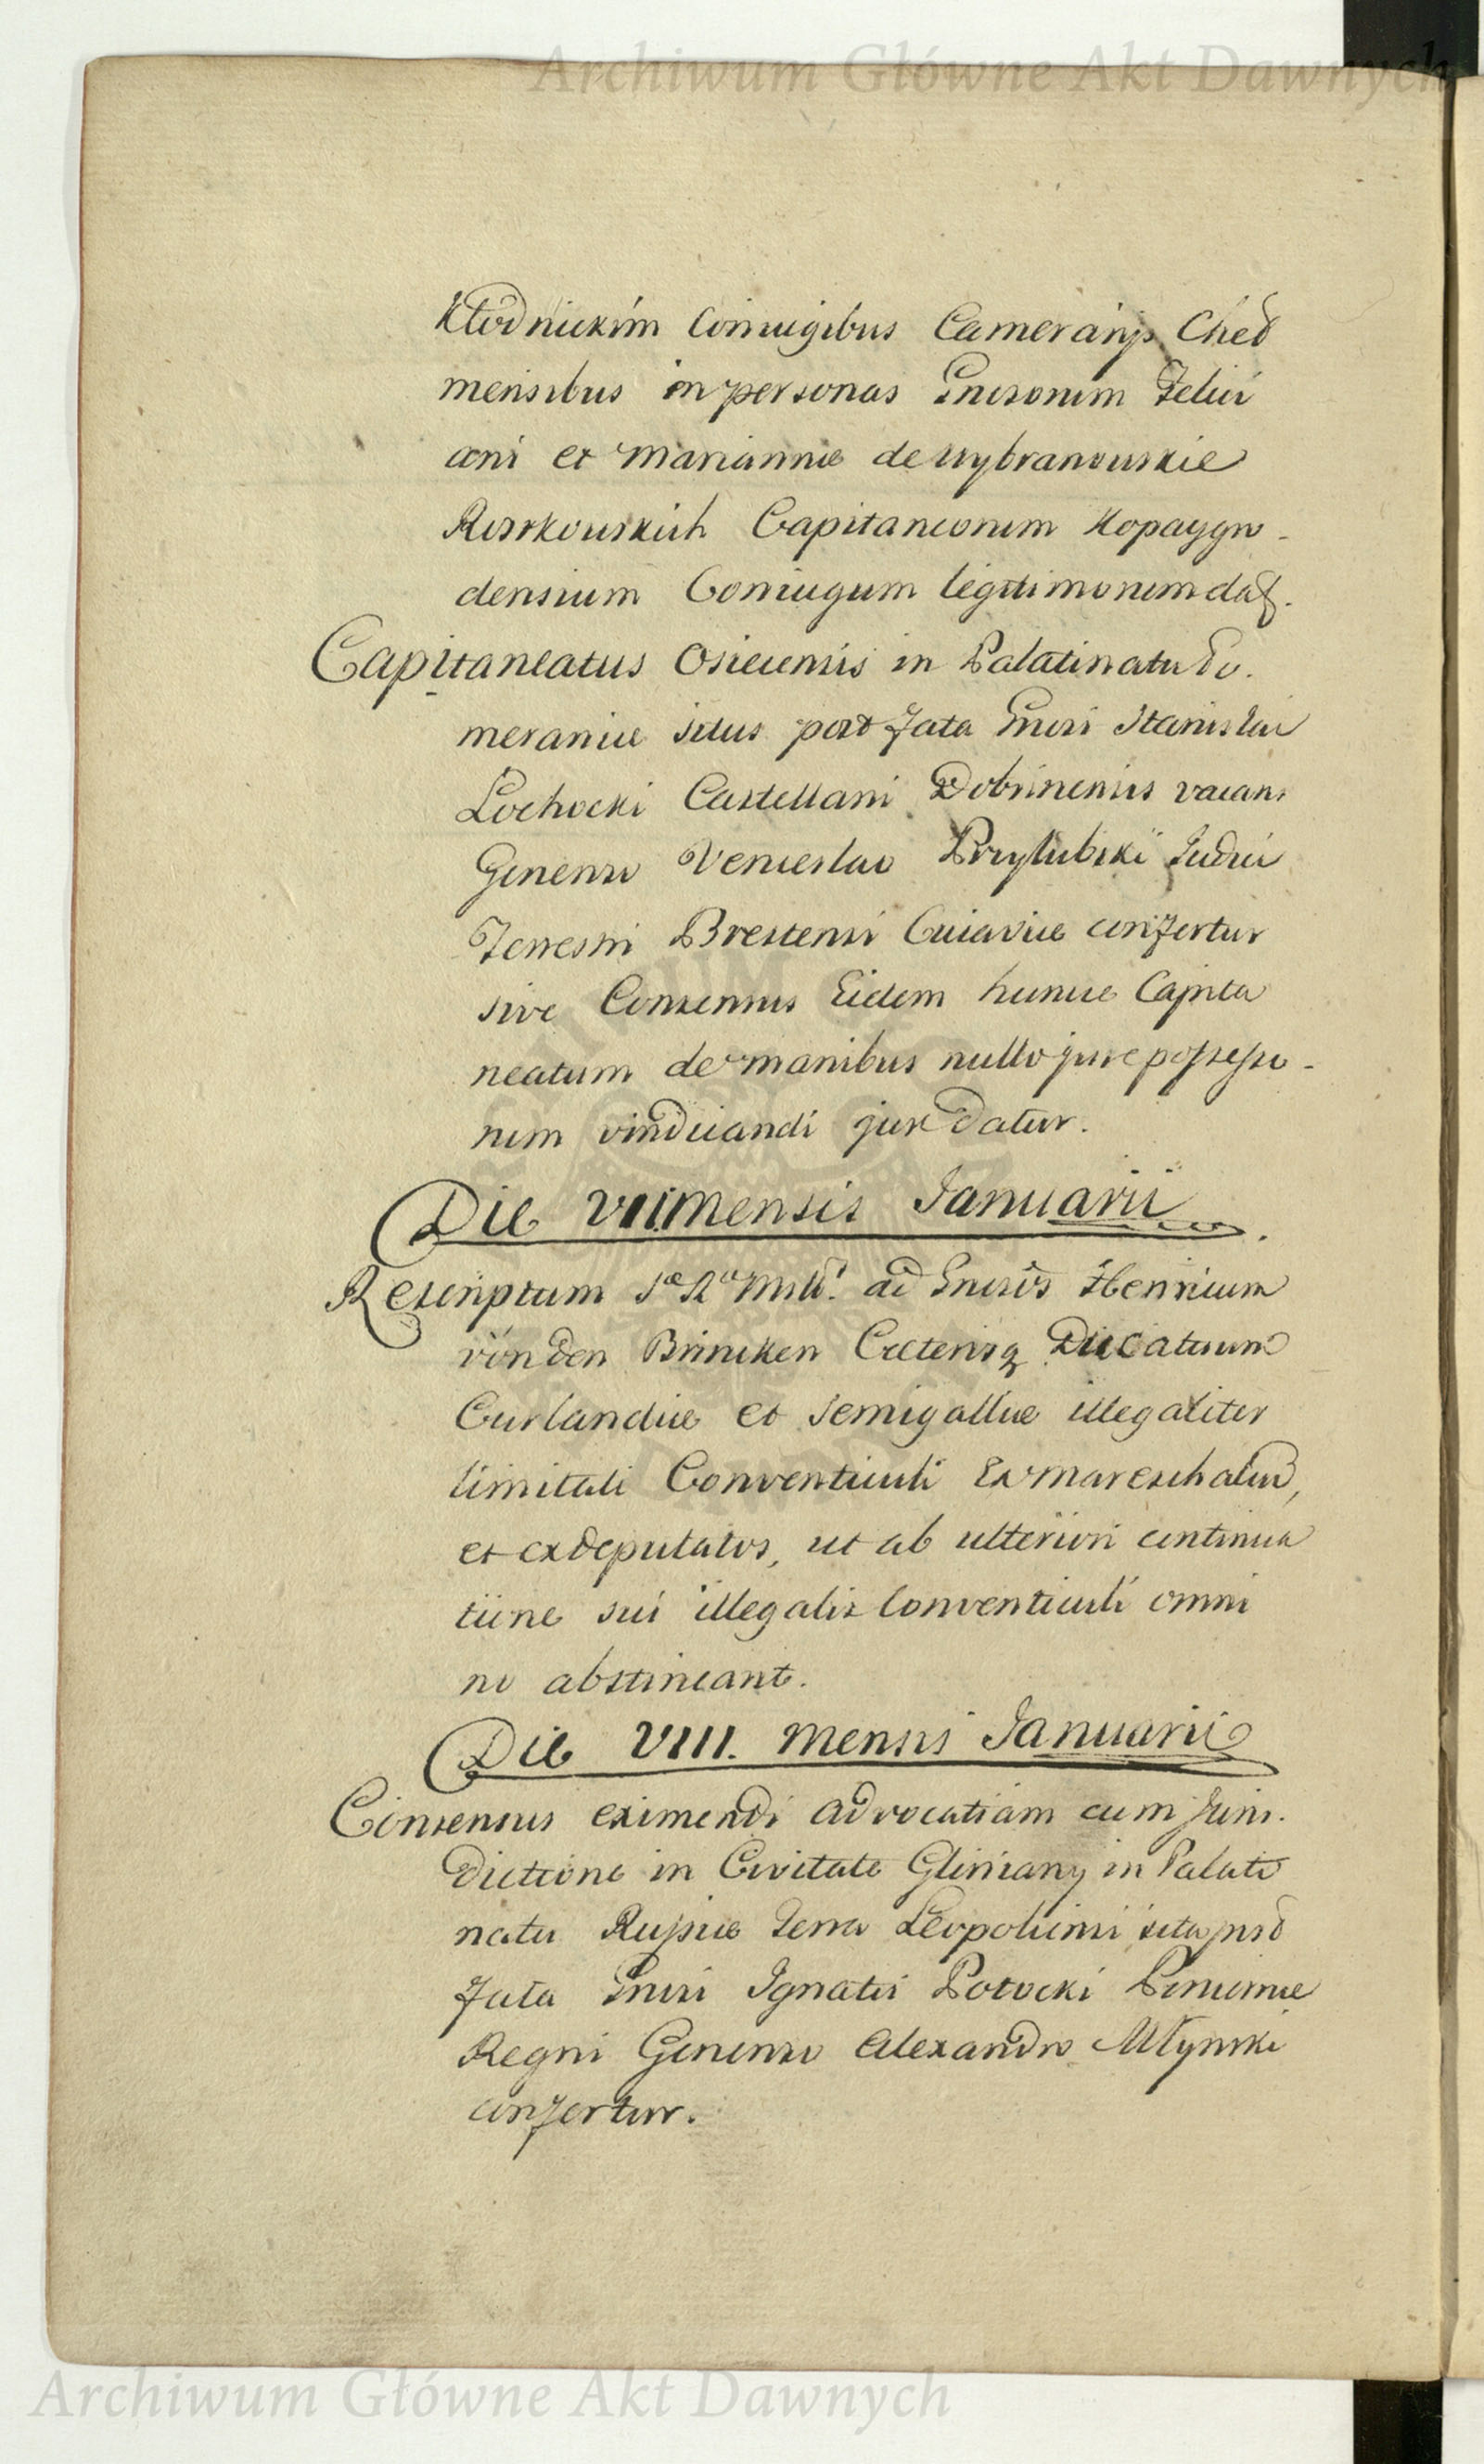 Archiwum Główne Akt Dawnych
Kłodnickim Coniugibus Cameranys Cheł
mensibus in personas Gnerosorum Felici
ani et Mariannæ de Wybranowskie
Roszkowskich Capitaneorum Kopaygro-
densium Coniugum legitimorum dat.
Capitaneatus Osiecensis in Palatinatu Po.
meraniæ situs post fata Gnrosi Stanislai
Łochocki Castellani Dobrinensis vacans
Generoso Venceslao Przyłubski Judici
Terrestri Brestensi Cuiaviæ confertur
sive Consensus Eidem hunce Capita
neatum de manibus nullo jure possesso-
rum vindicandi jure datur.
Die VII mensis Januarii.
Rescriptum Sæ Ræ Mttis ad Gnrosos Henricum
von den Brincken Cæterosq Ducatuum
Curlandiæ et Semigalliæ illegaliter
limitati Conventiculi Exmareschalcum,
et exdeputatos, ut ab ulteriori continua
tione sui illegalis Conventiculi omni
no abstineant.
Die VIII. Mensis Januarii
Consensus eximendi advocatiam cum Juris.
dictione in Civitate Gliniany in Palati
natu Russiæ Terra Leopoliensi sita post
fata Gnrosi Ignatii Potocki Pincernæ
Regni Generoso Alexandro Młynski
confertur.
Archiwum Główne Akt Dawnych